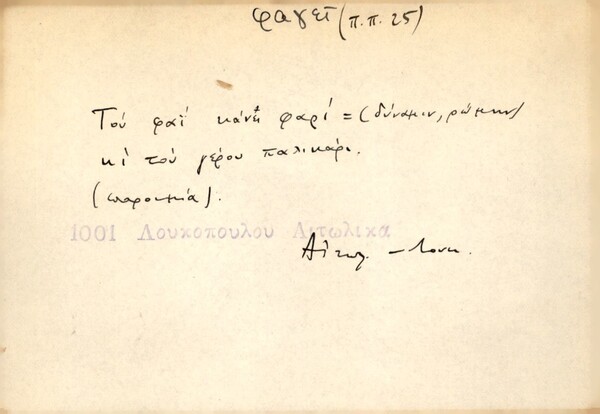 φαγεῖ (π.π. 25)
Τού φαΐ κάνει φαρί = (δύναμιν, ρώμην)
κὶ τού γέρου παλικάρι.
(παροιμία).
1001 Λουκοπουλου Αιτωλικα
Αἰτωλ. – Λουκ.